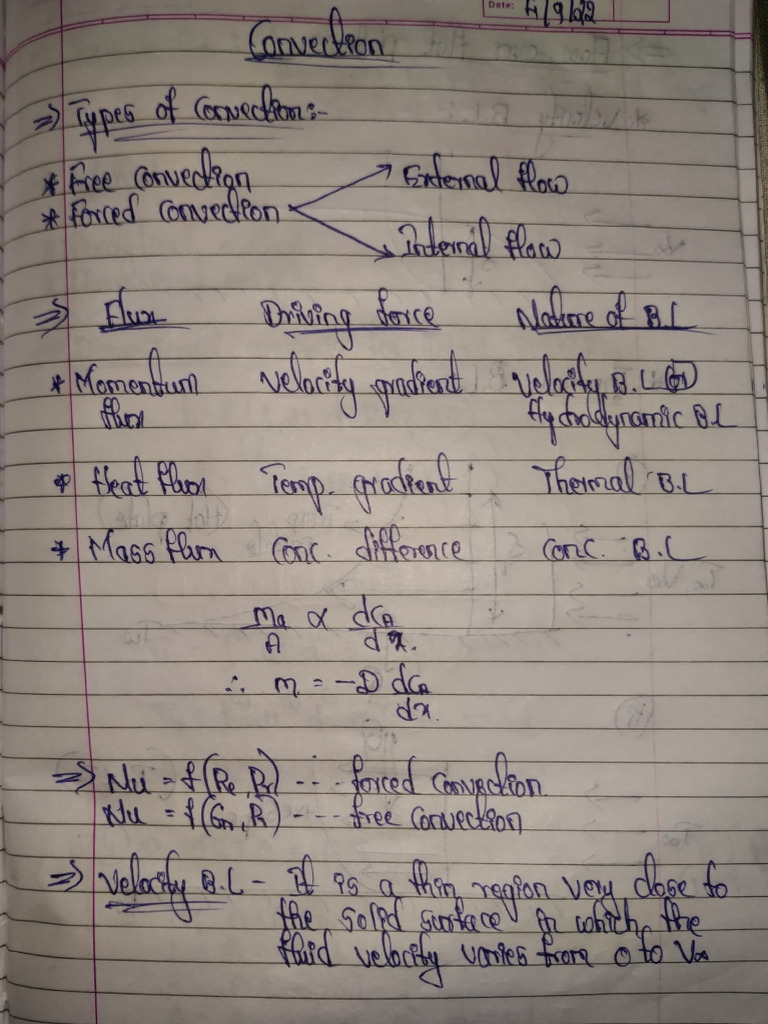 Date: 4/9/22
Convection
⇒ Types of Convection:-
* Free convection
* Forced convection
External flow
Internal flow
⇒ Flux Driving force Nature of B.L
* Momentum flux Velocity gradient Velocity B.L (or) Hydrodynamic B.L
* Heat flux Temp. gradient Thermal B.L
* Mass flux Conc. difference Conc. B.L
ma/A ∝ dCa/dx.
∴ m = -D dCa/dx.
⇒ Nu = f(Re, Pr) --- forced convection
Nu = f(Gr, Pr) --- free convection
⇒ Velocity B.L - It is a thin region very close to
the solid surface in which the
fluid velocity varies from 0 to V∞